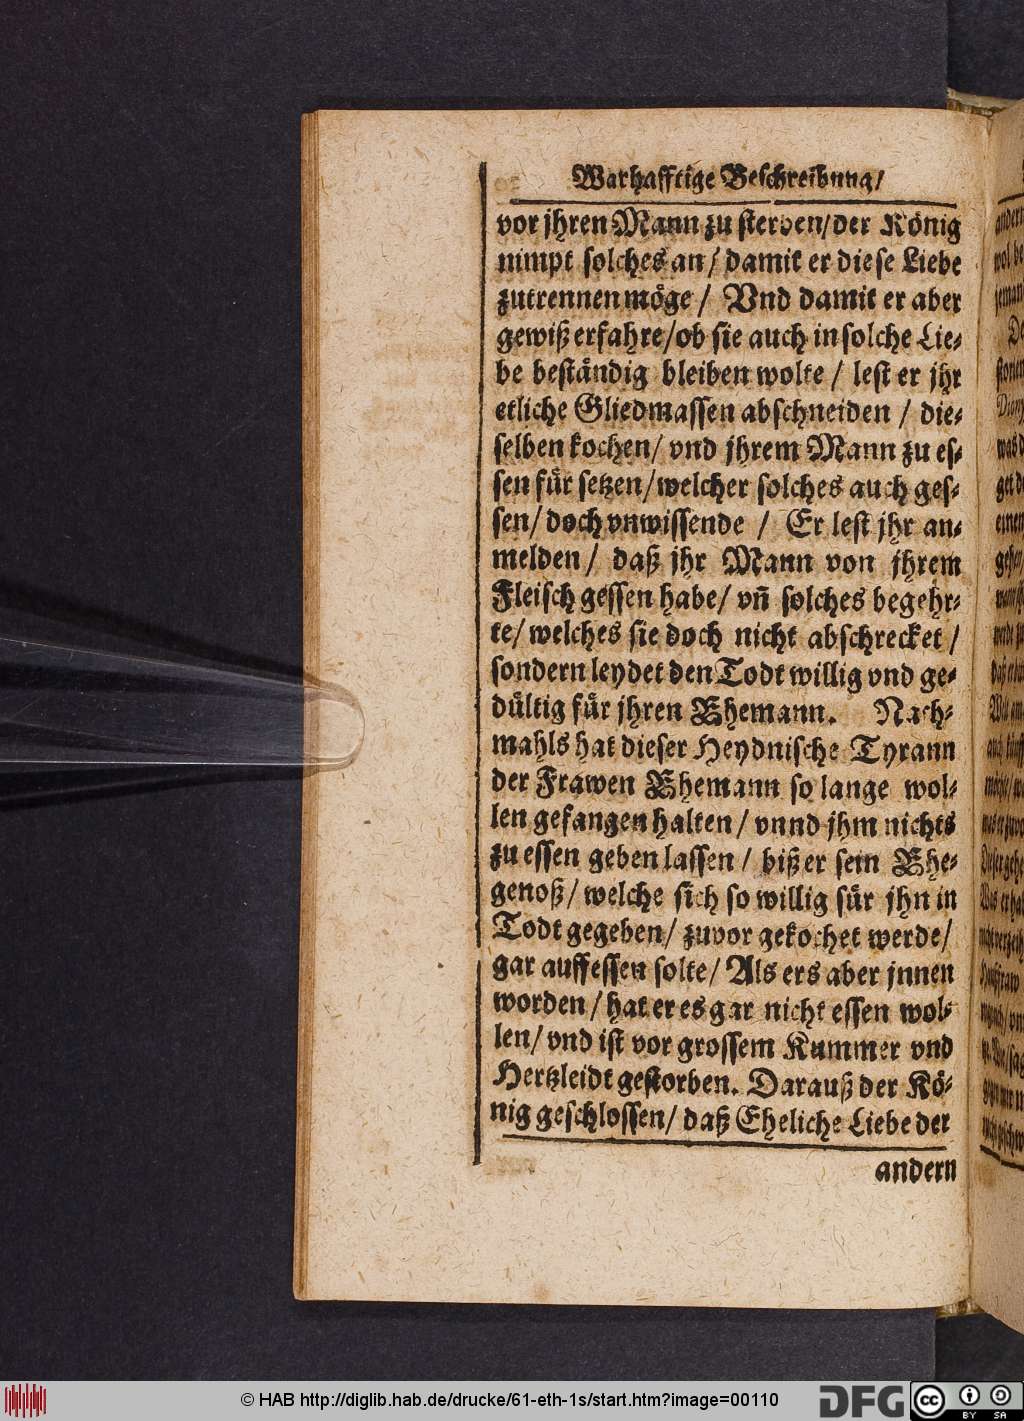 Warhafftige Beschreibung/
vor jhren Mann zu sterben/der König
nimpt solches an/ damit er diese Liebe
zutrennen möge/ Vnd damit er aber
gewiß erfahre/ob sie auch in solche Lie-
be beständig bleiben wolte/ lest er jhr
etliche Gliedmassen abschneiden/ die-
selben kochen/ vnd jhrem Mann zu es-
sen für setzen/welcher solches auch ges-
sen/ doch vnwissende/ Er lest jhr an-
melden/ daß jhr Mann von jhrem
Fleisch gessen habe/ vñ solches begehr-
te/ welches sie doch nicht abschrecket/
sondern leydet den Todt willig vnd ge-
dültig für jhren Ehemann. Nach-
mahls hat dieser Heydnische Tyrann
der Frawen Ehemann so lange wol-
len gefangen halten/ vnnd jhm nichts
zu essen geben lassen/ biß er sein Ehe-
genoß/ welche sich so willig für jhn in
Todt gegeben/ zuvor gekochet werde/
gar auffessen solte/ Als ers aber jnnen
worden/ hat er es gar nicht essen wol-
len/ vnd ist vor grossem Kummer vnd
Hertzleidt gestorben. Darauß der Kö-
nig geschlossen/ daß Eheliche Liebe der
andern
© HAB http://diglib.hab.de/drucke/61-eth-1s/start.htm?image=00110
DFG
cc BY SA